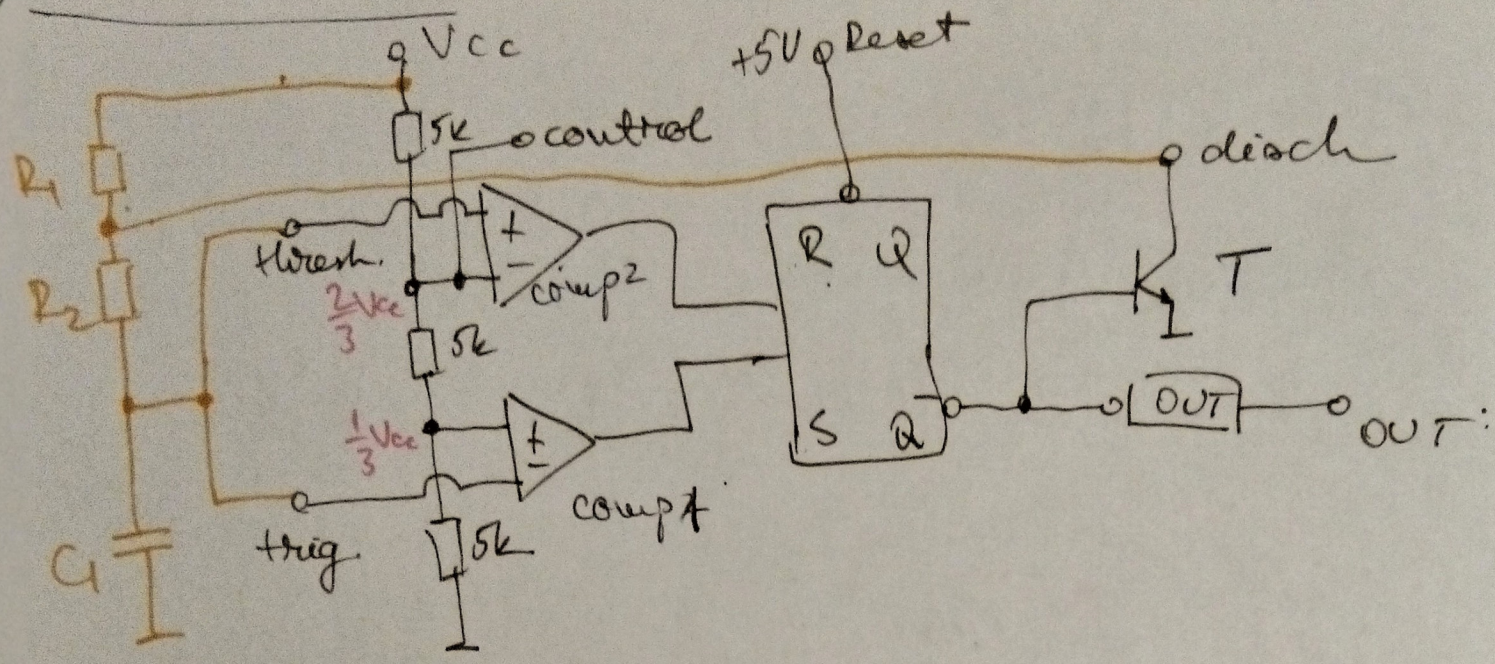 Vcc
+5V Reset
5k control
disch
R1
thresh.
+
-
comp2
R Q
T
R2
2/3 Vcc
5k
1/3 Vcc
+
-
S Q̅
OUT
OUT
comp1
trig.
5k
C1